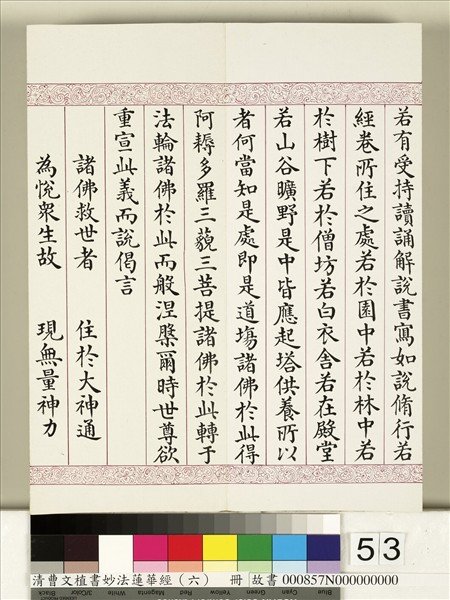 若有受持讀誦解說書寫如說脩行若
經卷所住之處若於園中若於林中若
於樹下若於僧坊若白衣舍若在殿堂
若山谷曠野是中皆應起塔供養所以
者何當知是處即是道塲諸佛於此得
阿耨多羅三藐三菩提諸佛於此轉于
法輪諸佛於此而般涅槃爾時世尊欲
重宣此義而說偈言
諸佛救世者 住於大神通
為悅衆生故 現無量神力
53
Black 3/Color White Magenta Red Yellow Green Cyan Blue
清曹文植書妙法蓮華經（六） 冊 故書 000857N000000000